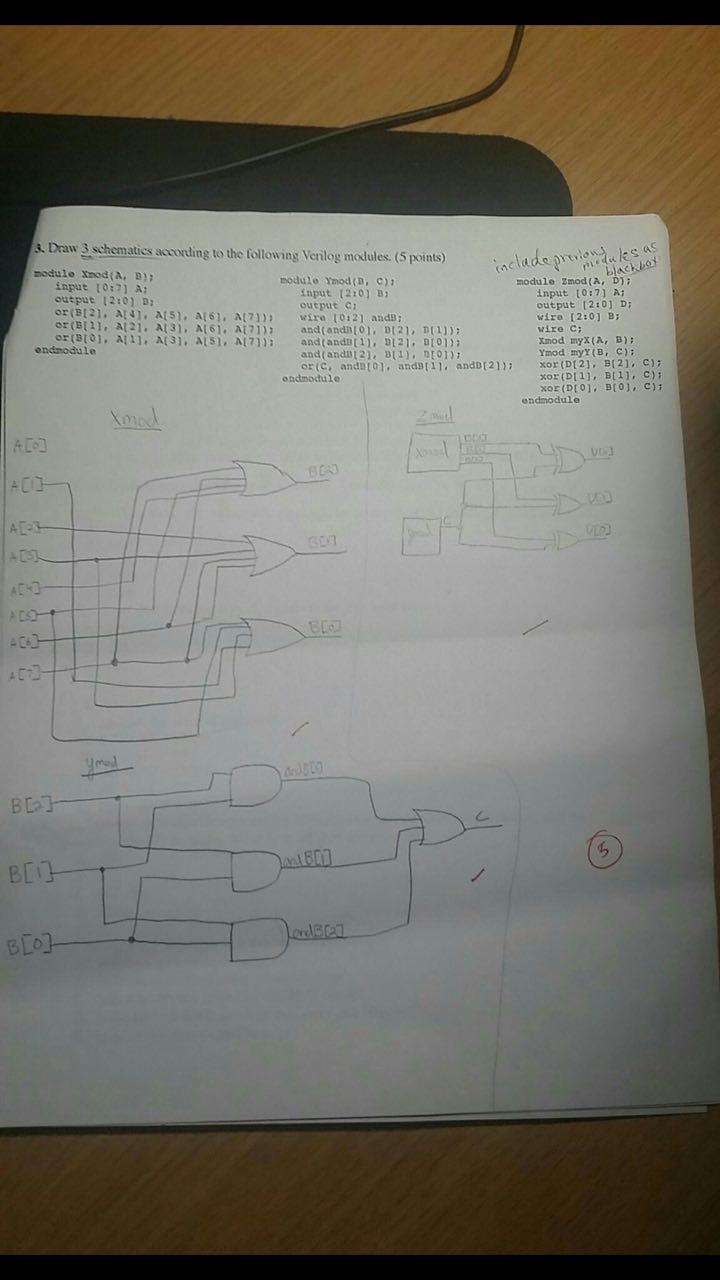 3. Draw 3 schematics according to the following Verilog modules. (5 points)
include previous modules as blackbox
module Xmod(A, B);
input [0:7] A;
output [2:0] B;
or(B[2], A[4], A[5], A[6], A[7]);
or(B[1], A[2], A[3], A[6], A[7]);
or(B[0], A[1], A[3], A[5], A[7]);
endmodule
module Ymod(B, C);
input [2:0] B;
output C;
wire [0:2] andB;
and(andB[0], B[2], B[1]);
and(andB[1], B[2], B[0]);
and(andB[2], B[1], B[0]);
or(C, andB[0], andB[1], andB[2]);
endmodule
module Zmod(A, D);
input [0:7] A;
output [2:0] D;
wire [2:0] B;
wire C;
Xmod myX(A, B);
Ymod myY(B, C);
xor(D[2], B[2], C);
xor(D[1], B[1], C);
xor(D[0], B[0], C);
endmodule
Xmod
A[0]
A[1]
A[2]
A[3]
A[4]
A[5]
A[6]
A[7]
B[2]
B[1]
B[0]
Zmod
Xmod
Ymod
C
ymod
B[2]
B[1]
B[0]
andB[0]
andB[1]
andB[2]
C
5